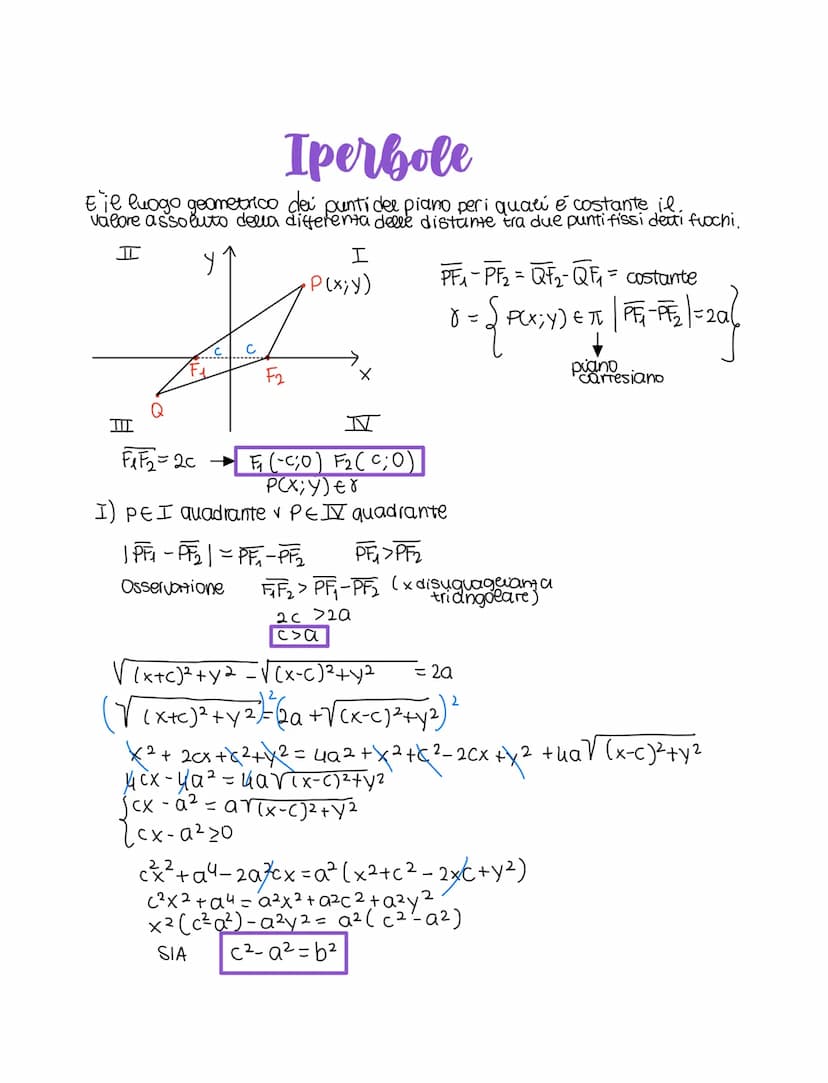 Iperbole
E' il luogo geometrico dei punti del piano per i quali é costante il
valore assoluto della differenza delle distanze tra due punti fissi detti fuochi.
II y I
P(x;y)
c c
F₁ F₂ x
Q
III IV
PF₁ - PF₂ = QF₂ - QF₁ = costante
γ = { P(x;y) ∈ π | |PF₁ - PF₂| = 2a }
piano
cartesiano
F₁F₂ = 2c → F₁(-c;0) F₂(c;0)
P(x;y) ∈ γ
I) P ∈ I quadrante v P ∈ IV quadrante
|PF₁ - PF₂| = PF₁ - PF₂ PF₁ > PF₂
Osservazione F₁F₂ > PF₁ - PF₂ (x disuguaglianza
triangolare)
2c > 2a
c > a
√(x+c)² + y² - √(x-c)² + y² = 2a
(√(x+c)² + y²)² = (2a + √(x-c)² + y²)²
x² + 2cx + c² + y² = 4a² + x² + c² - 2cx + y² + 4a√(x-c)² + y²
4cx - 4a² = 4a√(x-c)² + y²
{ cx - a² = a√(x-c)² + y²
cx - a² ≥ 0
c²x² + a⁴ - 2a²cx = a²(x² + c² - 2xc + y²)
c²x² + a⁴ = a²x² + a²c² + a²y²
x²(c² - a²) - a²y² = a²(c² - a²)
SIA c² - a² = b²